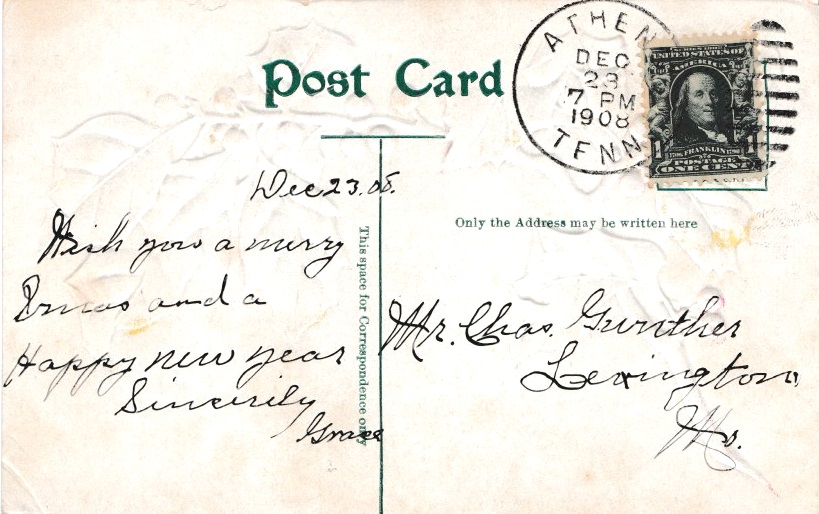 Post Card
ATHEN
DEC
23
7 PM
1908
TENN
SERIES 1902
UNITED STATES OF
AMERICA
1 FRANKLIN 1
POSTAGE
ONE CENT
Only the Address may be written here
This space for Correspondence only
Dec 23. 08.
Wish you a merry
Xmas and a
Happy new year
Sincerily
Grace
Mr. Chas. Gunther
Lexington,
Mo.